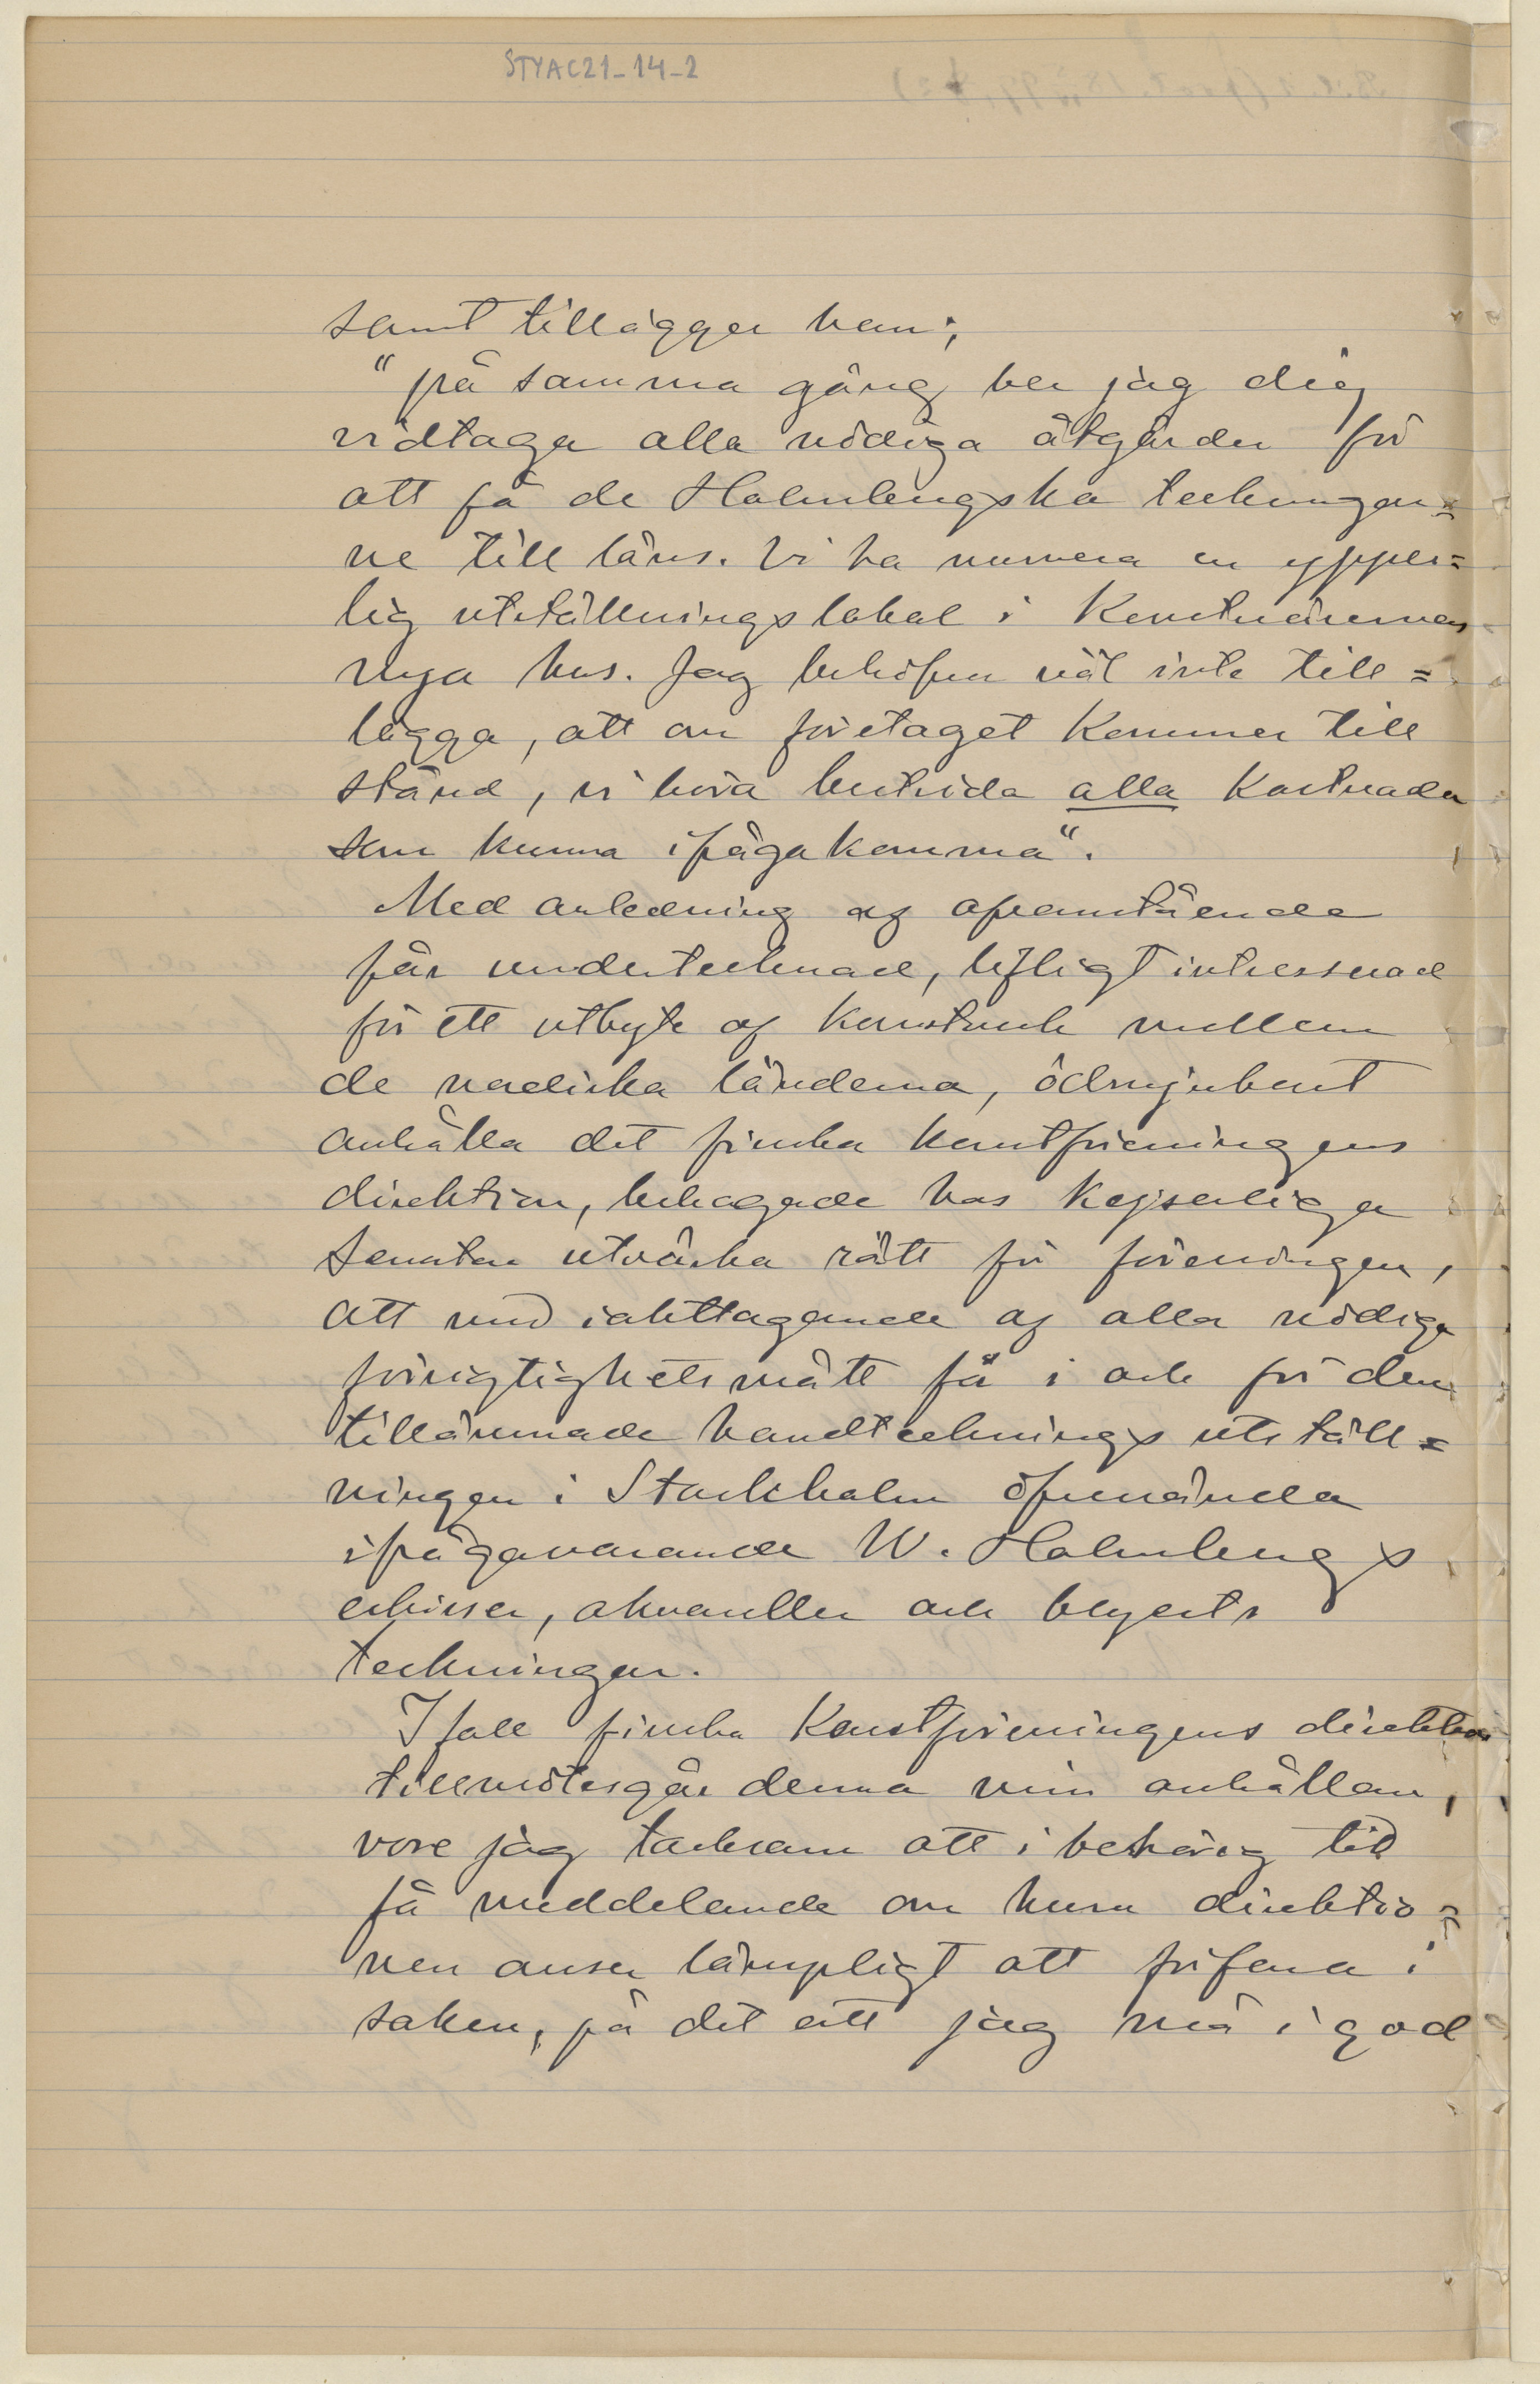 STYAC21-14-2
samt tillägger han;
"på samma gång ber jag dig
vidtaga alla nödiga åtgärder för
att få de Holmbergska teckningar=
ne till låns. Vi ha numera en ypper=
lig utställningslokal i Konstnärernas
nya hus. Jag behöfver väl inte till=
lägga, att om företaget kommer till
stånd, vi böra bestrida alla kostnader
som kunna ifrågakomma".
Med anledning af ofvanstående
får undertecknad, lifligt intresserad
för ett utbyte af konstverk mellan
de nordiska länderna, ödmjukast
anhålla det finska konstföreningens
direktion, behagade hos Kejserliga
Senaten utvärka rätt för föreningen,
att med iakttagande af alla nödiga
försigtighetsmått få i och för den
tillärnade handtecknings utställ=
ningen i Stockholm öfversända
ifrågavarande W. Holmbergs
eskisser, akvareller och blyerts
teckningar.
Ifall finska Konstföreningens direktion
tillmötesgår denna min anhållan,
vore jag tacksam att i behörig tid
få meddelande om huru direktio=
nen anser lämpligt att förfara i
saken, på det att jag må i god